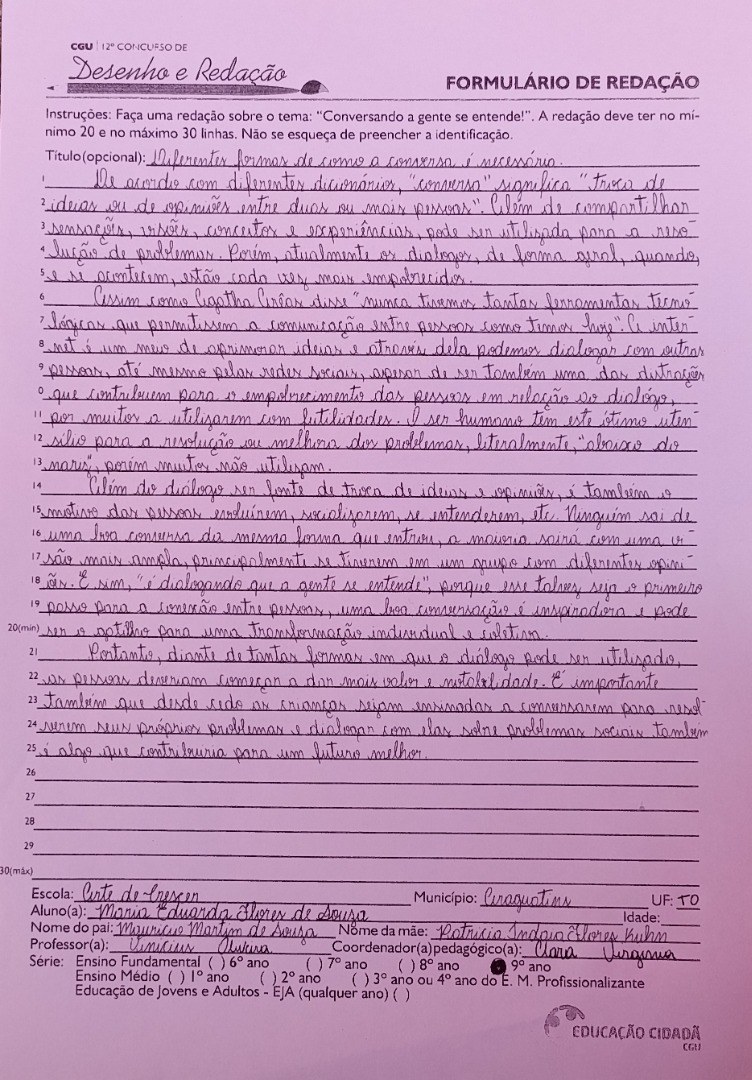 CGU | 12º CONCURSO DE
Desenho e Redação
FORMULÁRIO DE REDAÇÃO
Instruções: Faça uma redação sobre o tema: "Conversando a gente se entende!". A redação deve ter no mí-
nimo 20 e no máximo 30 linhas. Não se esqueça de preencher a identificação.
Título(opcional): Diferentes formas de como a conversa é necessário.
1 De acordo com diferentes dicionários, "conversa" significa "troca de
2 ideias ou de opiniões entre duas ou mais pessoas". Além de compartilhar
3 sensações, visões, conceitos e experiências, pode ser utilizada para a reso-
4 lução de problemas. Porém, atualmente os dialogos, de forma geral, quando,
5 e se acontecem, estão cada vez mais empobrecidos.
6 Assim como Agatha Arêas disse "nunca tivemos tantas ferramentas tecno-
7 lógicas que permitissem a comunicação entre pessoas como temos hoje". A inter-
8 net é um meio de aprimorar ideias e através dela podemos dialogar com outras
9 pessoas, até mesmo pelas redes sociais, apesar de ser também uma das distrações
0 que contribuem para o empobrecimento das pessoas em relação ao dialógo,
11 por muitos a utilizarem com futilidades. O ser humano tem este ótimo uten-
12 sílio para a resolução ou melhora dos problemas, literalmente, "abaixo do
13 nariz", porém muitos não utilizam.
14 Além do diálogo ser fonte de troca de ideias e opiniões, é também o
15 motivo das pessoas evoluírem, socializarem, se entenderem, etc. Ninguém sai de
16 uma boa conversa da mesma forma que entrou, a maioria sairá com uma vi-
17 são mais ampla, principalmente se tiverem em um grupo com diferentes opini-
18 ões. E sim, "é dialogando que a gente se entende", porque esse talvez seja o primeiro
19 passo para a conexão entre pessoas, uma boa conversação é inspiradora e pode
20(min) ser o gatilho para uma transformação individual e coletiva.
21 Portanto, diante de tantas formas em que o diálogo pode ser utilizado,
22 as pessoas deveriam começar a dar mais valor e notabilidade. É importante
23 também que desde cedo as crianças sejam ensinadas a conversarem para resol-
24 verem seus próprios problemas e dialogar com elas sobre problemas sociais também
25 é algo que contribuiria para um futuro melhor.
26
27
28
29
30(máx)
Escola: Arte de Crescer Município: Araguatins UF: TO
Aluno(a): Maria Eduarda Flores de Souza Idade:
Nome do pai: Mauricio Martim de Souza Nome da mãe: Patricia Flores Kuhn
Professor(a): Vinícius Coordenador(a)pedagógico(a): Clara Virginia
Série: Ensino Fundamental ( ) 6º ano ( ) 7º ano ( ) 8º ano 9º ano
Ensino Médio ( ) 1º ano ( ) 2º ano ( ) 3º ano ou 4º ano do E. M. Profissionalizante
Educação de Jovens e Adultos - EJA (qualquer ano) ( )
EDUCAÇÃO CIDADÃ
CGU